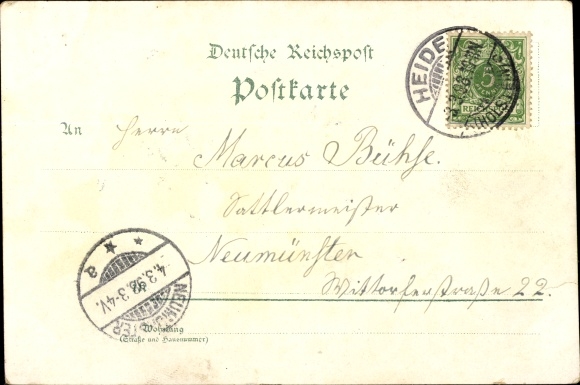 Deutsche Reichspost
Postkarte
HEIDE
HOLSTEIN
5
REICHSPOST
An Herrn
Marcus Bühse.
Sattlermeister
Neumünster
Wittorferstraße 22.
NEUMÜNSTER
4.3.98.3-4V.
a
Wohnung
(Straße und Hausnummer)